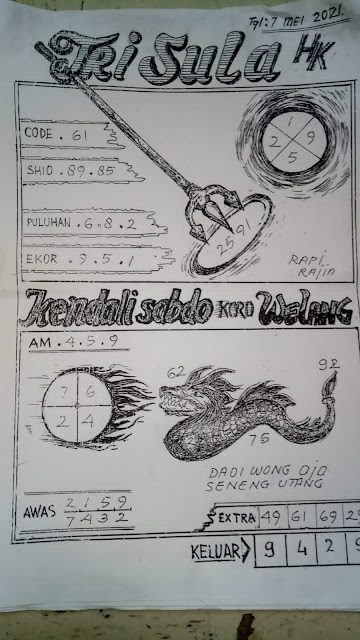 Tgl: 7 MEI 2021.
Tri Sula HK
CODE . 61
SHIO . 89. 85
PULUHAN . 6. 8. 2
EKOR . 9. 5. 1
1
2 9
5
2591
RAPI
RAJIN
Kendali sabdo KORO WELANG
AM . 4. 5. 9
7 6
2 4
62
92
75
DADI WONG OJO
SENENG UTANG
AWAS 2159
7432
EXTRA 49 61 69
KELUAR 9 4 2 9